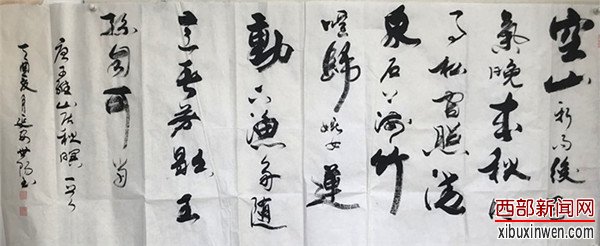 空山新雨後天
氣晚来秋明
月松間照清
泉石上流竹
喧歸浣女蓮
動下漁舟随
意春芳歇王
孫自可留
唐王維山居秋暝一首
丁酉夏月延安世书
西部新闻网
xibuxinwen.com